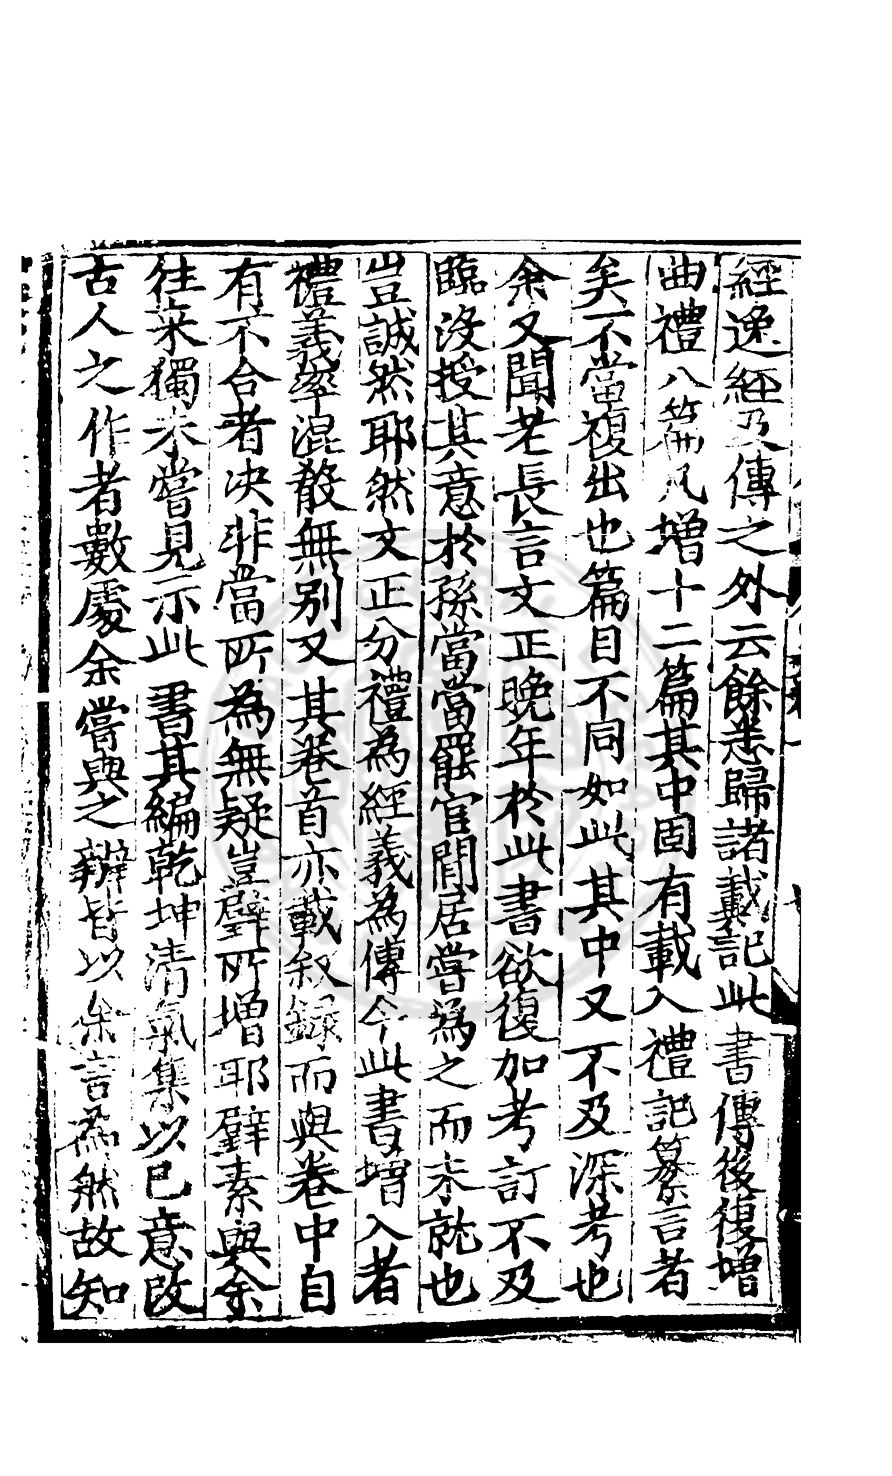 經逸經及傳之外云餘悉歸諸戴記此書傳後復增
曲禮八篇凡增十二篇其中固有載入禮記纂言者
矣不當複出也篇目不同如此其中又不及深考也
余又聞老長言文正晚年於此書欲復加考訂不及
臨没授其意於孫當當罷官閒居嘗為之而未就也
豈誠然耶然文正分禮為經義為傳今此書增入者
禮義率混殽無别又其卷首亦載叙錄而與卷中自
有不合者决非當所為無疑豈璧所增耶璧素與余
往来獨未嘗見示此書其編乾坤清氣集以已意改
古人之作者數處余嘗與之辨皆以余言為然故知